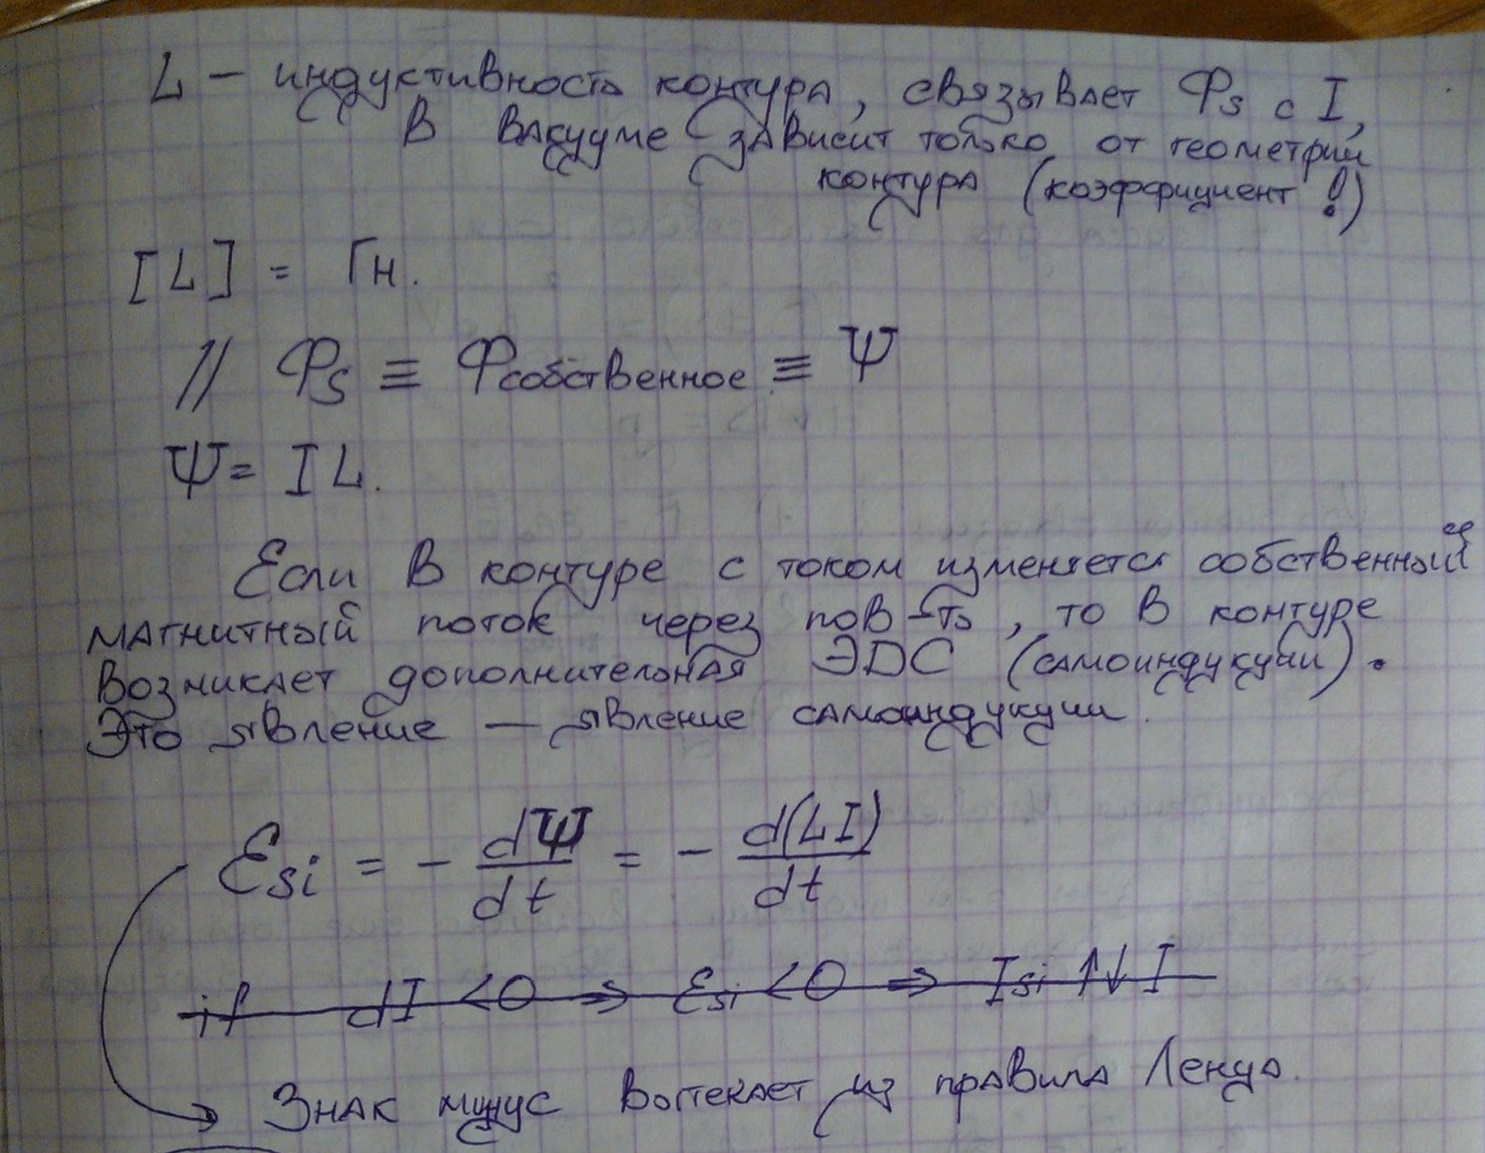 L – индуктивность контура, связывает Φs с I,
в вакууме зависит только от геометрии
контура (коэффициент!)
[L] = Гн.
// Φs ≡ Φсобственное ≡ Ψ
Ψ = IL.
Если в контуре с током изменяется собственный
магнитный поток через его пов-ть, то в контуре
возникает дополнительная ЭДС (самоиндукции).
Это явление — явление самоиндукции.
Ɛsi = - dΨ/dt = - d(LI)/dt
if dI < 0 ⇒ Ɛsi < 0 ⇒ Isi ↑↓ I
Знак минус вытекает из правила Ленца.